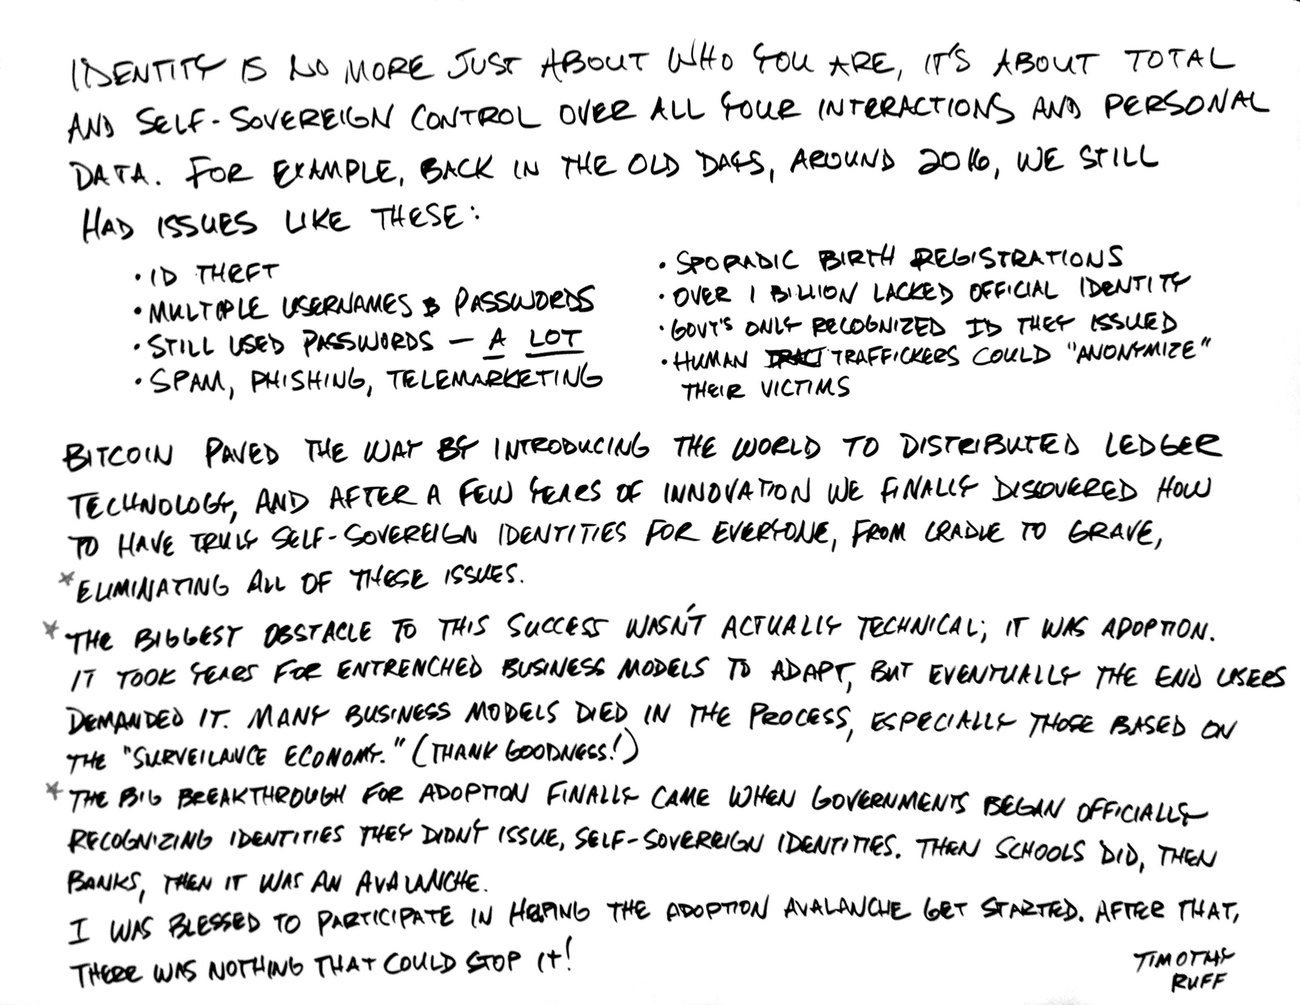 IDENTITY IS NO MORE JUST ABOUT WHO YOU ARE, IT'S ABOUT TOTAL
AND SELF-SOVEREIGN CONTROL OVER ALL YOUR INTERACTIONS AND PERSONAL
DATA. FOR EXAMPLE, BACK IN THE OLD DAYS, AROUND 2016, WE STILL
HAD ISSUES LIKE THESE:
• ID THEFT
• MULTIPLE USERNAMES & PASSWORDS
• STILL USED PASSWORDS — A LOT
• SPAM, PHISHING, TELEMARKETING
• SPORADIC BIRTH REGISTRATIONS
• OVER 1 BILLION LACKED OFFICIAL IDENTITY
• GOVT'S ONLY RECOGNIZED ID THEY ISSUED
• HUMAN TRAFFICKERS COULD "ANONYMIZE"
THEIR VICTIMS
BITCOIN PAVED THE WAY BY INTRODUCING THE WORLD TO DISTRIBUTED LEDGER
TECHNOLOGY, AND AFTER A FEW YEARS OF INNOVATION WE FINALLY DISCOVERED HOW
TO HAVE TRULY SELF-SOVEREIGN IDENTITIES FOR EVERYONE, FROM CRADLE TO GRAVE,
* ELIMINATING ALL OF THESE ISSUES.
* THE BIGGEST OBSTACLE TO THIS SUCCESS WASN'T ACTUALLY TECHNICAL; IT WAS ADOPTION.
IT TOOK YEARS FOR ENTRENCHED BUSINESS MODELS TO ADAPT, BUT EVENTUALLY THE END USERS
DEMANDED IT. MANY BUSINESS MODELS DIED IN THE PROCESS, ESPECIALLY THOSE BASED ON
THE "SURVEILANCE ECONOMY." (THANK GOODNESS!)
* THE BIG BREAKTHROUGH FOR ADOPTION FINALLY CAME WHEN GOVERNMENTS BEGAN OFFICIALLY
RECOGNIZING IDENTITIES THEY DIDN'T ISSUE, SELF-SOVEREIGN IDENTITIES. THEN SCHOOLS DID, THEN
BANKS, THEN IT WAS AN AVALANCHE.
I WAS BLESSED TO PARTICIPATE IN HELPING THE ADOPTION AVALANCHE GET STARTED. AFTER THAT,
THERE WAS NOTHING THAT COULD STOP IT!
TIMOTHY
RUFF